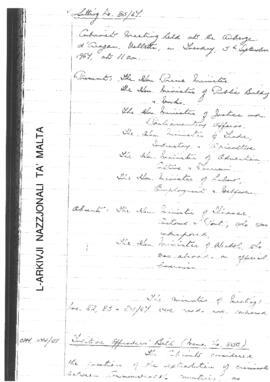 Sitting No. 85/67.
Cabinet Meeting held at the Auberge
d'Aragon, Valletta, on Tuesday, 5th September
1967, at 11 a.m.
Present: The Hon. Prime Minister
The Hon. Minister of Public Building
& Works.
The Hon. Minister of Justice and
Parliamentary Affairs.
The Hon. Minister of Trade,
Industry & Agriculture
The Hon. Minister of Education,
Culture & Tourism
The Hon. Minister of Labour,
Employment & Welfare.
Absent: The Hon. Minister of Finance,
Customs & Port, who was
indisposed
The Hon. Minister of Health, who
was abroad on official
business.
The minutes of Meetings
Nos. 82, 83 & 84/67 were read and
Fugitive Offenders' Bill (Memo. No.
The Cabinet considered
the question of the extradition of criminals
between Commonwealth countries, as
L-ARKIVJI NAZZJONALI TA' MALTA